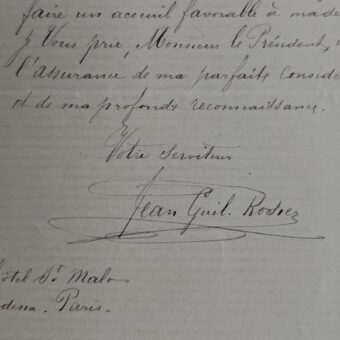 faire un acceuil favorable à ma de
Vous prie, Monsieur le Président,
l'assurance de ma parfaite Conside
et de ma profonde reconnaissance.
Votre Serviteur
Jean Guil. Rosier
ôtel St Malo
Paris.